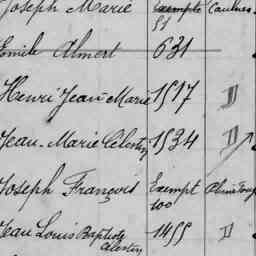 Joseph Marie Exempté Caulnes
51
Emile Almert 631
Henri Jean Marie 1517 II
Jean-Marie Célestin 1534 II
Joseph François Exempt
100
Jean Louis Baptiste 1455 II
Célestin